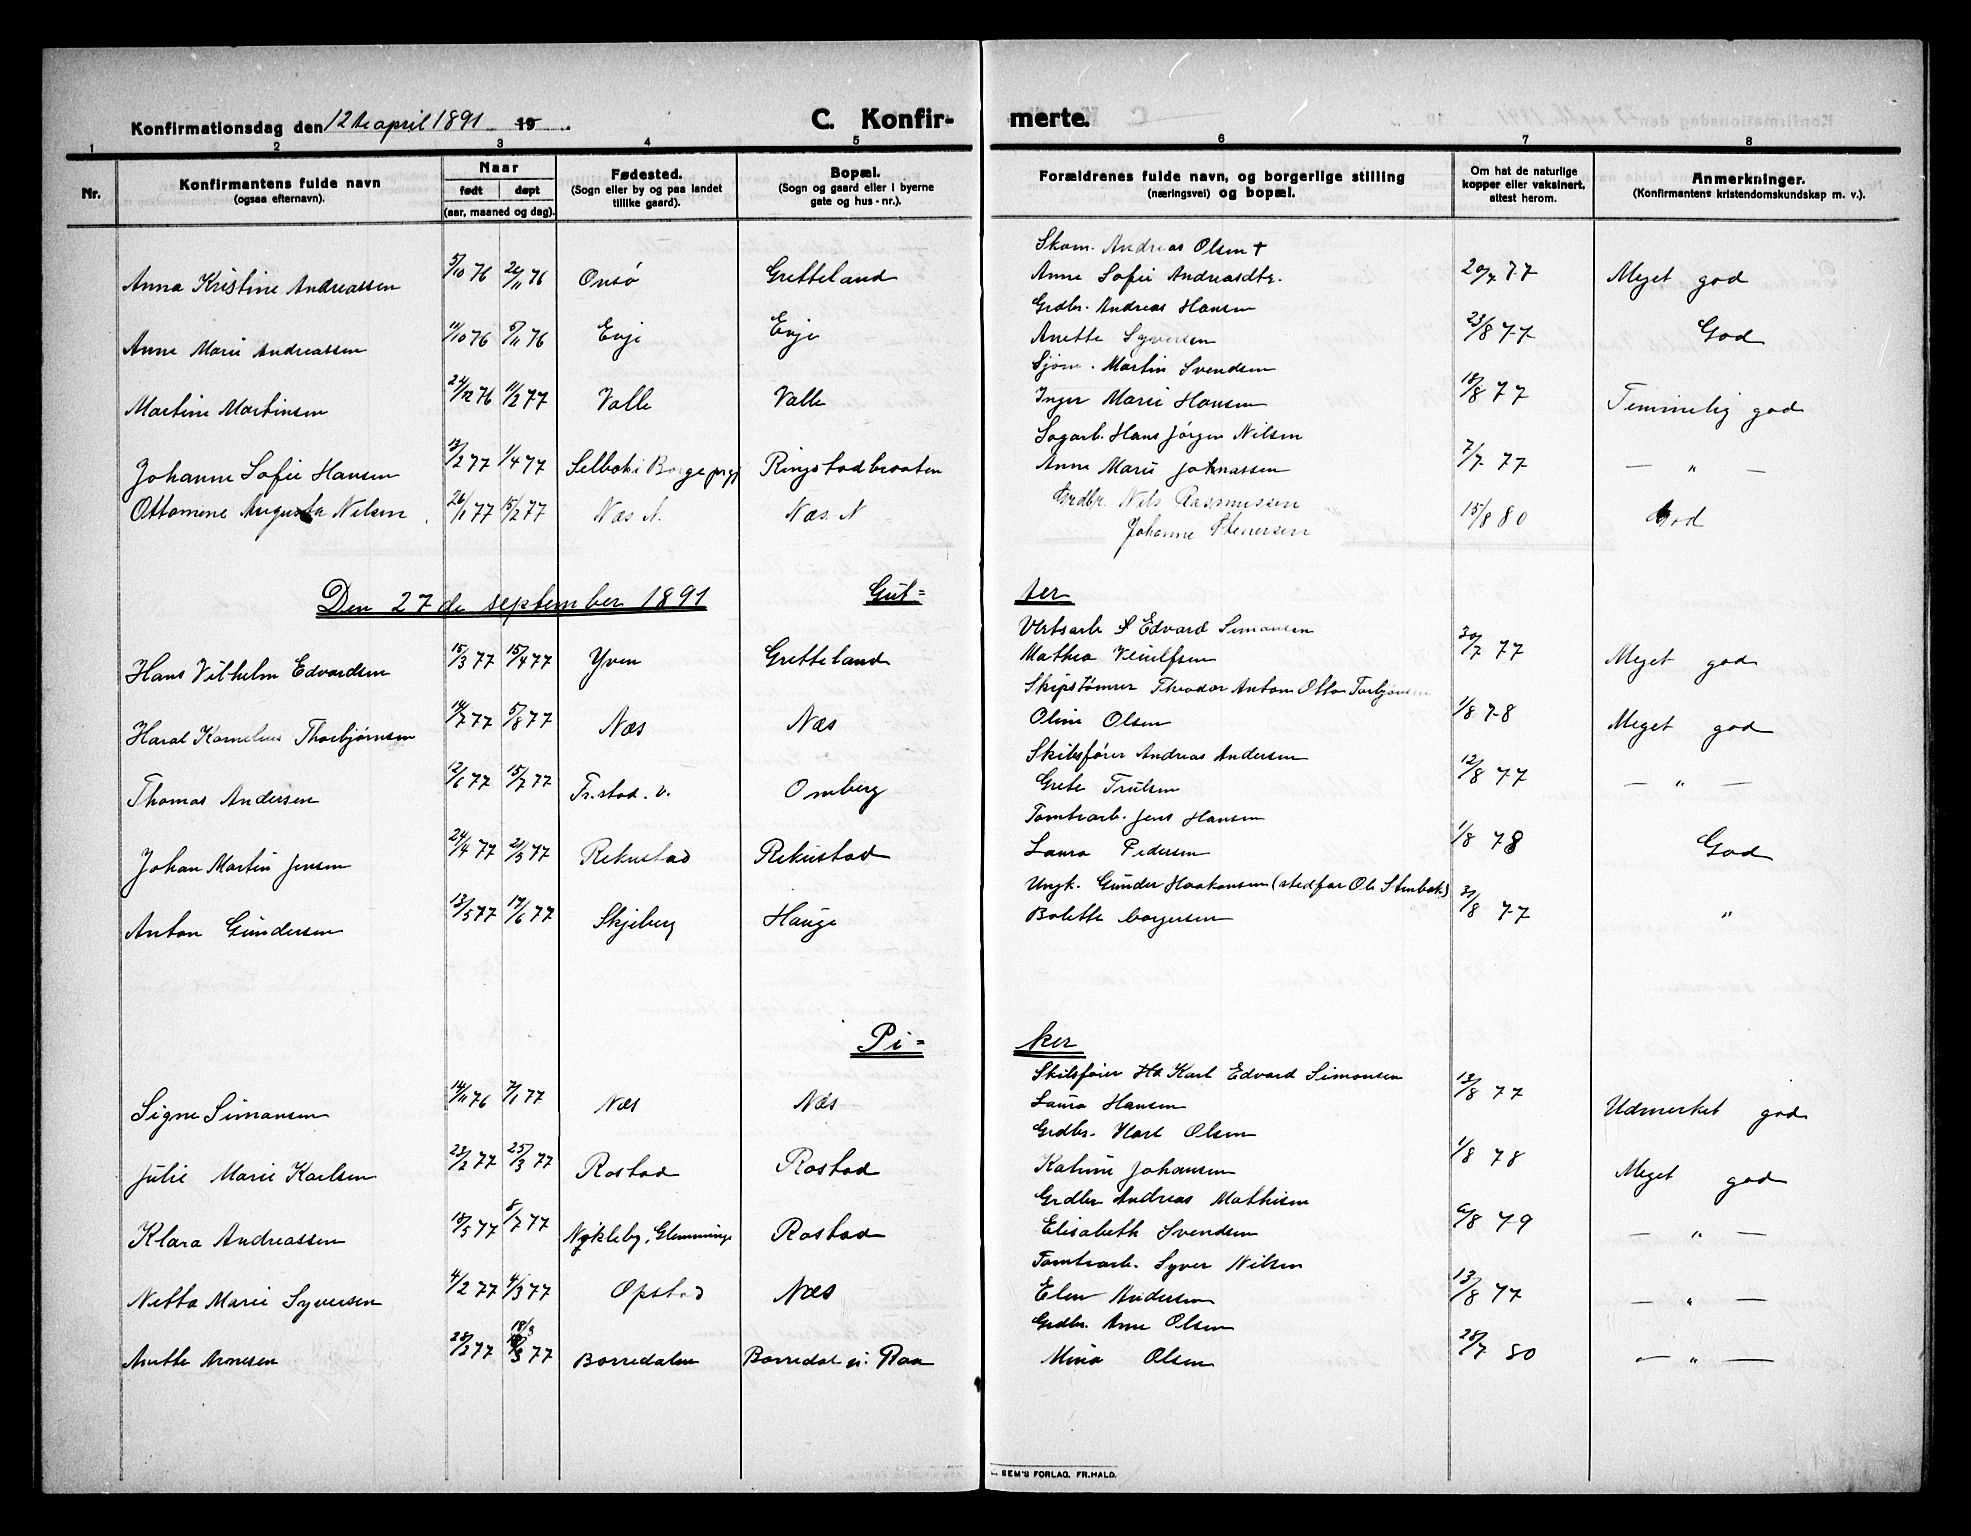 Konfirmationsdag den 12te april 1891 19
C. Konfir- merte.
1 2 3 4 5 6 7 8
Nr.
Konfirmantens fulde navn (ogsaa efternavn).
Naar født døpt (aar, maaned og dag).
Fødested. (Sogn eller by og paa landet tillike gaard).
Bopæl. (Sogn og gaard eller i byerne gate og hus-nr.).
Forældrenes fulde navn, og borgerlige stilling (næringsvei) og bopæl.
Om hat de naturlige kopper eller vaksinert, attest herom.
Anmerkninger. (Konfirmantens kristendomskundskap m. v.).
Skom. Andreas Olsen +
Anna Kristine Andreassen 5/10 76 26/11 76 Onsø Gretteland Anne Sofie Andreasdtr. 20/7 77 Meget god
Grdbr. Andreas Hansen
Anne Marie Andreassen 11/10 76 5/11 76 Evje Evje Anette Syversen 23/8 77 God
Sjøm. Martin Svendsen
Martine Martinsen 24/12 76 11/2 77 Valle Valle Inger Marie Hansen 18/8 77 Temmelig god
Sagarb. Hans Jørgen Nilsen
Johanne Sofie Hansen 13/2 77 1/4 77 Selbak i Borge prgj Ringstadbraaten Anne Marie Johnassen 7/7 77 — " —
Ottomine Augusta Nilsen 26/1 77 15/2 77 Næs N. Næs. N Grdbr. Nils Rasmussen 15/8 80 God
Johanne Stenersen
Den 27de september 1891 Gut= ter
Vertsarb S Edvard Simonsen
Hans Vilhelm Edvardsen 15/3 77 15/4 77 Yven Gretteland Mathea 30/7 77 Meget god
Skipstømrer Theodor Anton Otto Torbjønsen
Haral Kornelius Thorbjørnsen 14/7 77 5/8 77 Næs Næs Oline Olsen 1/8 78 Meget god
Skibsfører Andreas Andersen
Thomas Andersen 12/6 77 15/7 77 Fr.stad. v. Omberg Grete Trulsen 12/8 77 — " —
Tomtearb. Jens Hansen
Johan Martin Jensen 24/4 77 21/5 77 Rekustad Rekustad Laura Pedersen 1/8 78 God
Ungk. Gunder Haakonsen (stedfar Ole Stenbæk)
Anton Gundersen 13/5 77 17/6 77 Skjeberg Hauge Bolette Borgersen 31/8 77 "
Pi= ker
Skibsfører Hd Karl Edvard Simonsen
Signe Simonsen 14/11 76 7/1 77 Næs Næs Laura Hansen 13/8 77 Udmerket god
Grdbr. Karl Olsen
Julie Marie Karlsen 23/2 77 25/3 77 Rostad Rostad Katrine Johansen 1/8 78 Meget god
Grdbr Andreas Mathisen
Klara Andreassen 18/5 77 8/7 77 Nykleby, Glemminge Rostad Elisabeth Svendsen 6/8 79 — " —
Tomtearb. Syver Nilsen
Netta Marie Syversen 4/2 77 4/3 77 Opstad Næs Elen Andersen 13/8 77 — " —
Grdbr. Arne Olsen
Anette Arnesen 28/2 77 18/3 77 Borredalen Borredal u. Raa Mina Olsen 28/7 80 — " —
SEM'S FORLAG. FR.HALD.